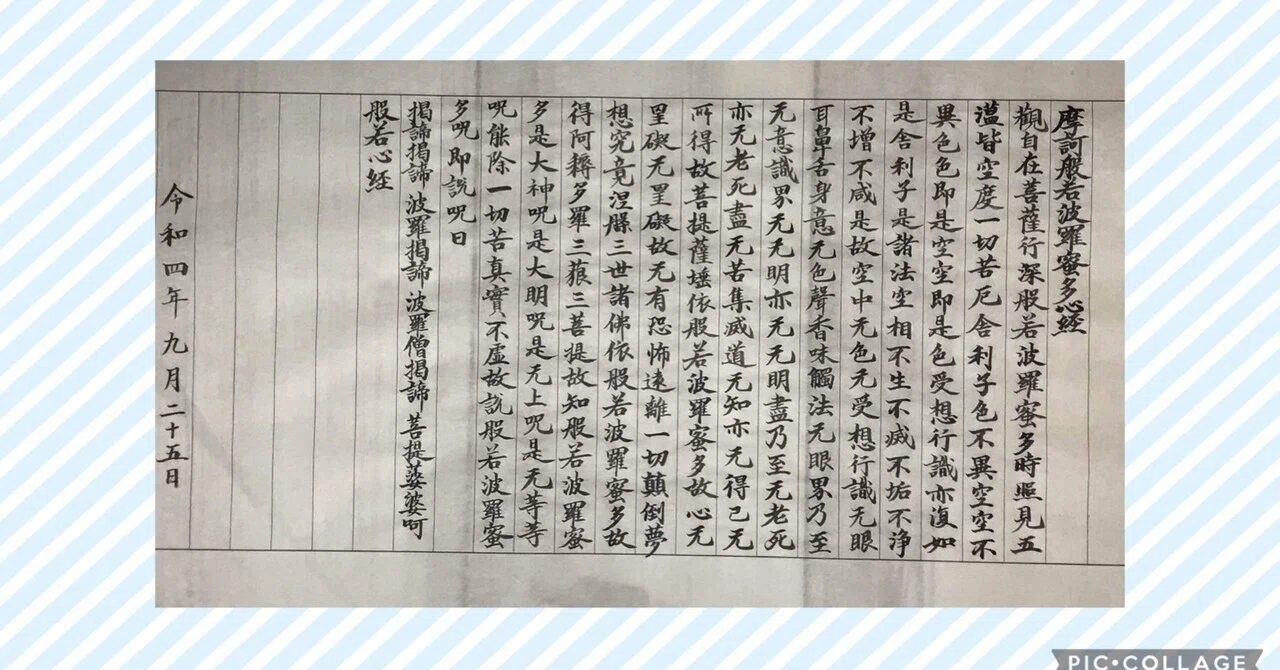 摩訶般若波羅蜜多心経
觀自在菩薩行深般若波羅蜜多時照見五
薀皆空度一切苦厄舎利子色不異空空不
異色色即是空空即是色受想行識亦復如
是舎利子是諸法空相不生不滅不垢不浄
不增不减是故空中无色无受想行識无眼
耳鼻舌身意无色聲香味觸法无眼界乃至
无意識界无无明亦无无明盡乃至无老死
亦无老死盡无苦集滅道无知亦无得已无
所得故菩提薩埵依般若波羅蜜多故心无
罣礙无罣礙故无有恐怖遠離一切顛倒夢
想究竟涅槃三世諸佛依般若波羅蜜多故
得阿耨多羅三藐三菩提故知般若波羅蜜
多是大神呪是大明呪是无上呪是无等等
呪能除一切苦真實不虚故説般若波羅蜜
多呪即説呪曰
揭諦揭諦 波羅揭諦 波羅僧揭諦 菩提薩婆呵
般若心経
令和四年九月二十五日
PIC•COLLAGE